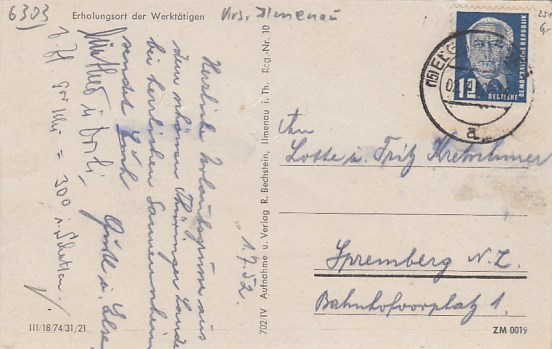 6303
Erholungsort der Werktätigen
Krs. Ilmenau
1.7.52.
Herzliche Urlaubsgrüsse aus
dem schönen Thüringer Lande
bei herrlichem Sonnenschein
sendet Euch
= 300 
III/18/74/31/21
702/IV Aufnahme u. Verlag R. Bechstein, Ilmenau i. Th. Reg.-Nr. 10
12
DEUTSCHE
DEMOKRATISCHE REPUBLIK
a
An
Lotte u. Fritz Kretschmer
Spremberg N.L.
Bahnhofvorplatz 1
ZM 0019